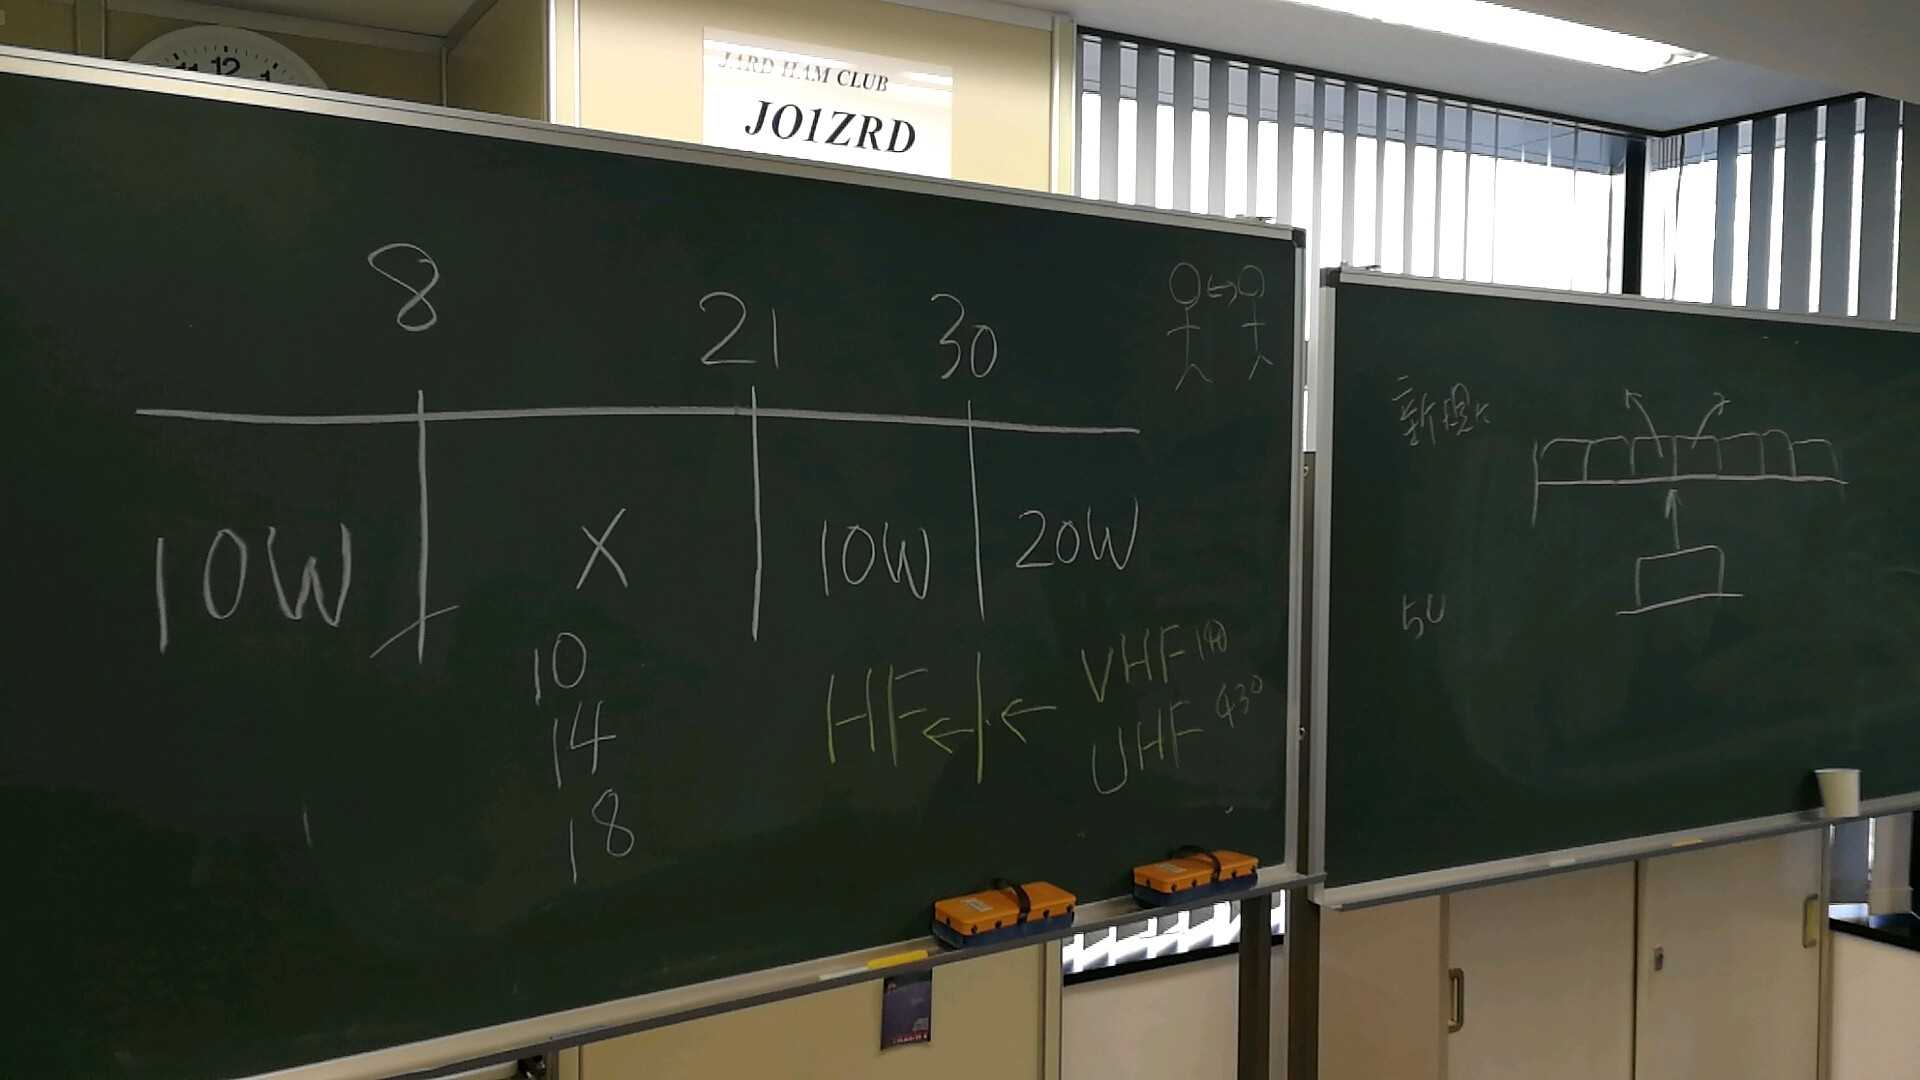 11 12 1
JARD HAM CLUB
JO1ZRD
8 21 30
10W × 10W 20W
10
14
18
HF ← ← VHF
UHF 430
新規
50